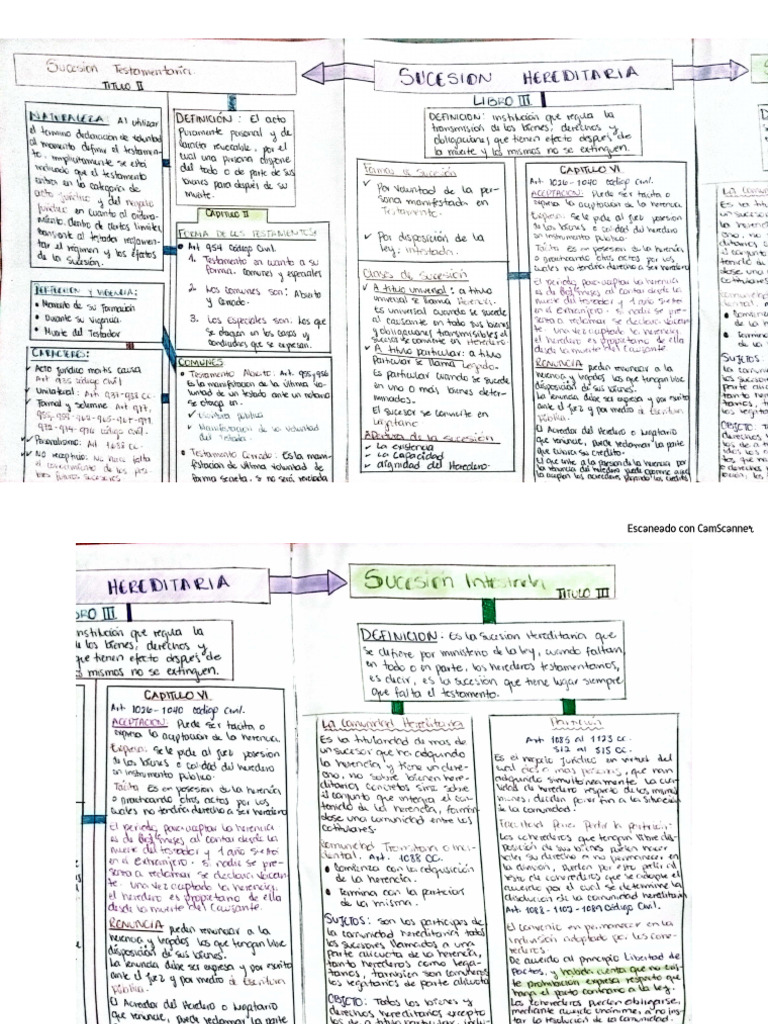 Sucesion Testamentaria
TITULO II
NATURALEZA: Al utilizar
el termino declaración de voluntad
al momento definir el testamen-
to, implicitamente se está
indicando que el testamento
entra en la categoría de
acto jurídico y del negocio
jurídico en cuanto al ordena-
miento, dentro de ciertos limites,
el régimen y los efectos
de la sucesión.
DEFINICIÓN: El acto
Puramente personal y de
carácter revocable, por el
cual una persona dispone
del todo o de parte de sus
bienes para después de su
muerte.
CAPITULO II
FORMA DE LOS TESTAMENTOS:
• Art 954 Código Civil.
1. Testamento en cuanto a su
forma. Comunes y especiales
2. Los comunes son: Abierto
y Cerrado.
3. Los especiales son: los que
se otorgan en los casos y
condiciones que se expresan.
DEFINICION Y VIGENCIA:
• Momento de su formación
• Durante su vigencia
• Muerte del Testador
CARACTERES:
✓ Acto jurídico mortis causa
Art 935 código Civil
✓ Unilateral: Art 937-938 CC.
✓ Formal y solemne Art 977,
código Civil.
✓ Personalismo: Art
✓ No recepticio: No hace falta
el conocimiento de los
futuros sucesores
COMUNES
• Testamento Abierto: Art. 955, 956
Es la manifestación de la última volun-
tad de un testador ante un notario
se otorga en:
✓ Escritura pública
✓ Manifestación de su voluntad
del Testado.
• Testamento Cerrado: Es la mani-
festacion de última voluntad de
forma secreta, si no será revelada
SUCESION HEREDITARIA
LIBRO III
DEFINICION: institución que regula la
transmisión de los bienes, derechos y
obligaciones que tienen efecto después de
la muerte y los mismos no se extinguen.
Formas de Sucesión
✓ Por voluntad de la per-
sona manifestada en
Testamento.
✓ Por disposición de la
ley: intestada.
Clases de Sucesión
✓ A titulo universal: a titulo
universal se llama Herencia.
Es universal cuando se sucede
al causante en todo sus bienes
y obligaciones transmisibles el
sucesor se convierte en Heredero
✓ A titulo particular: a titulo
Particular se llama Legado.
Es particular cuando se sucede
en uno o mas bienes deter-
minados.
El sucesor se convierte en
Legatario
Apertura de la sucesión
✓ La existencia
✓ La Capacidad
✓ dignidad del Heredero.
CAPITULO VI
Art 1026-1040 código civil.
ACEPTACION: Puede ser tacita o
expresa la aceptación de la herencia.
Expresa: Se le pide al juez posesión
de los bienes o calidad del heredero
en instrumento público.
Tacita: Es en posesion de la herencia
o practicando otros actos por los
cuales no tendria derecho a ser heredero
El periodo para aceptar la herencia
es de 6 meses al contar desde la
muerte del testador y 1 año si está
en el extranjero. si nadie se pre-
senta a reclamar se declara vacan-
te. una vez aceptado la herencia,
el heredero es propietario de ella
desde la muerte del causante.
RENUNCIA pueden renunciar a la
herencia y legados los que tengan libre
disposición de sus bienes.
La renuncia debe ser expresa y por escrito
ante el juez y por medio de Escritura
Pública.
El Acreedor del Heredero o Legatario
que renuncie, puede reclamar la parte
que cubra su crédito.
Escaneado con CamScanner
HEREDITARIA
BRO III
nstitución que regula la
los bienes, derechos y
que tienen efecto después de
s mismos no se extinguen.
CAPITULO VI
Art 1026-1040 código civil.
ACEPTACION: Puede ser tacita o
expresa la aceptación de la herencia.
Expresa: Se le pide al juez posesión
de los bienes o calidad del heredero
en instrumento público.
Tacita: Es en posesion de la herencia
o practicando otros actos por los
cuales no tendria derecho a ser heredero
El periodo para aceptar la herencia
es de 6 meses al contar desde la
muerte del testador y 1 año si está
en el extranjero. si nadie se pre-
senta a reclamar se declara vacan-
te. una vez aceptado la herencia,
el heredero es propietario de ella
desde la muerte del causante.
RENUNCIA pueden renunciar a la
herencia y legados los que tengan libre
disposición de sus bienes.
La renuncia debe ser expresa y por escrito
ante el juez y por medio de Escritura
Pública.
El Acreedor del Heredero o Legatario
que renuncie, puede reclamar la parte
Sucesión Intestada
TITULO III
DEFINICION: Es la Sucesion Hereditaria que
se difiere por ministerio de la ley, cuando faltan,
en todo o en parte, los herederos testamentarios,
es decir, es la sucesión que tiene lugar siempre
que falta el testamento.
La Comunidad Hereditaria
Es la titularidad de mas de
un sucesor que ha adquirido
la herencia y tiene un dere-
cho, no sobre bienes here-
ditarios concretos sino sobre
el conjunto que integra el con-
tenido de la herencia, forman
dose una comunidad entre los
cotitulares.
Comunidad Transitoria o inci-
dental. Art. 1088 CC.
• Comienza con la adquisición
de la herencia.
• Termina con la particion
de la misma.
SUJETOS: son los participes de
la comunidad hereditaria todos
los sucesores llamados a una
parte alicuota de la herencia,
tanto herederos como lega-
tarios, tambien son coherederos
los legatarios de parte alicuota
OBJETO: Todos los bienes y
derechos hereditarios excepto
Partición
Art 1085 al 1123 CC.
512 al 515 CC.
Es el negocio Jurídico en virtud del
cual dos o mas personas, que han
adquirido simultáneamente la cuali-
dad de heredero respecto de las mismas
deciden poner fin a la situación
de la comunidad.
Facultad para Pedir la partición:
Los coherederos que tengan libre dis-
posición de sus bienes pueden hacer
valer su derecho a no permanecer en
la division, pueden por esto pedir el
cese de coherederos que se adopte el
acuerdo por el cual se determine la
disolución de la comunidad hereditaria
Art. 1088-1103-1089 Código Civil.
El convenio en permanecer en la
indivisión adoptado por los cohe-
rederos.
De acuerdo al principio Libertad de
Pactos, y habida cuenta que no exis-
te prohibición expresa respecto que
haga el pacto contrario a la ley.
Los coherederos pueden obligarse,
mediante acuerdo unánime, a no ins-
tar la disolución de la comunidad.